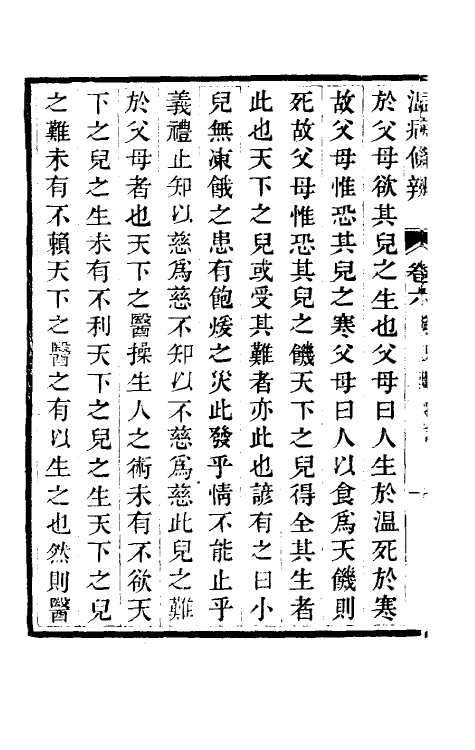 溫病條辨
卷六
於父母欲其兒之生也父母曰人生於溫死於寒
故父母惟恐其兒之寒父母曰人以食爲天饑則
死故父母惟恐其兒之饑天下之兒得全其生者
此也天下之兒或受其難者亦此也諺有之曰小
兒無凍餓之患有飽煖之災此發乎情不能止乎
義禮止知以慈爲慈不知以不慈爲慈此兒之難
於父母者也天下之醫操生人之術未有不欲天
下之兒之生未有不利天下之兒之生天下之兒
之難未有不賴天下之醫之有以生之也然則醫